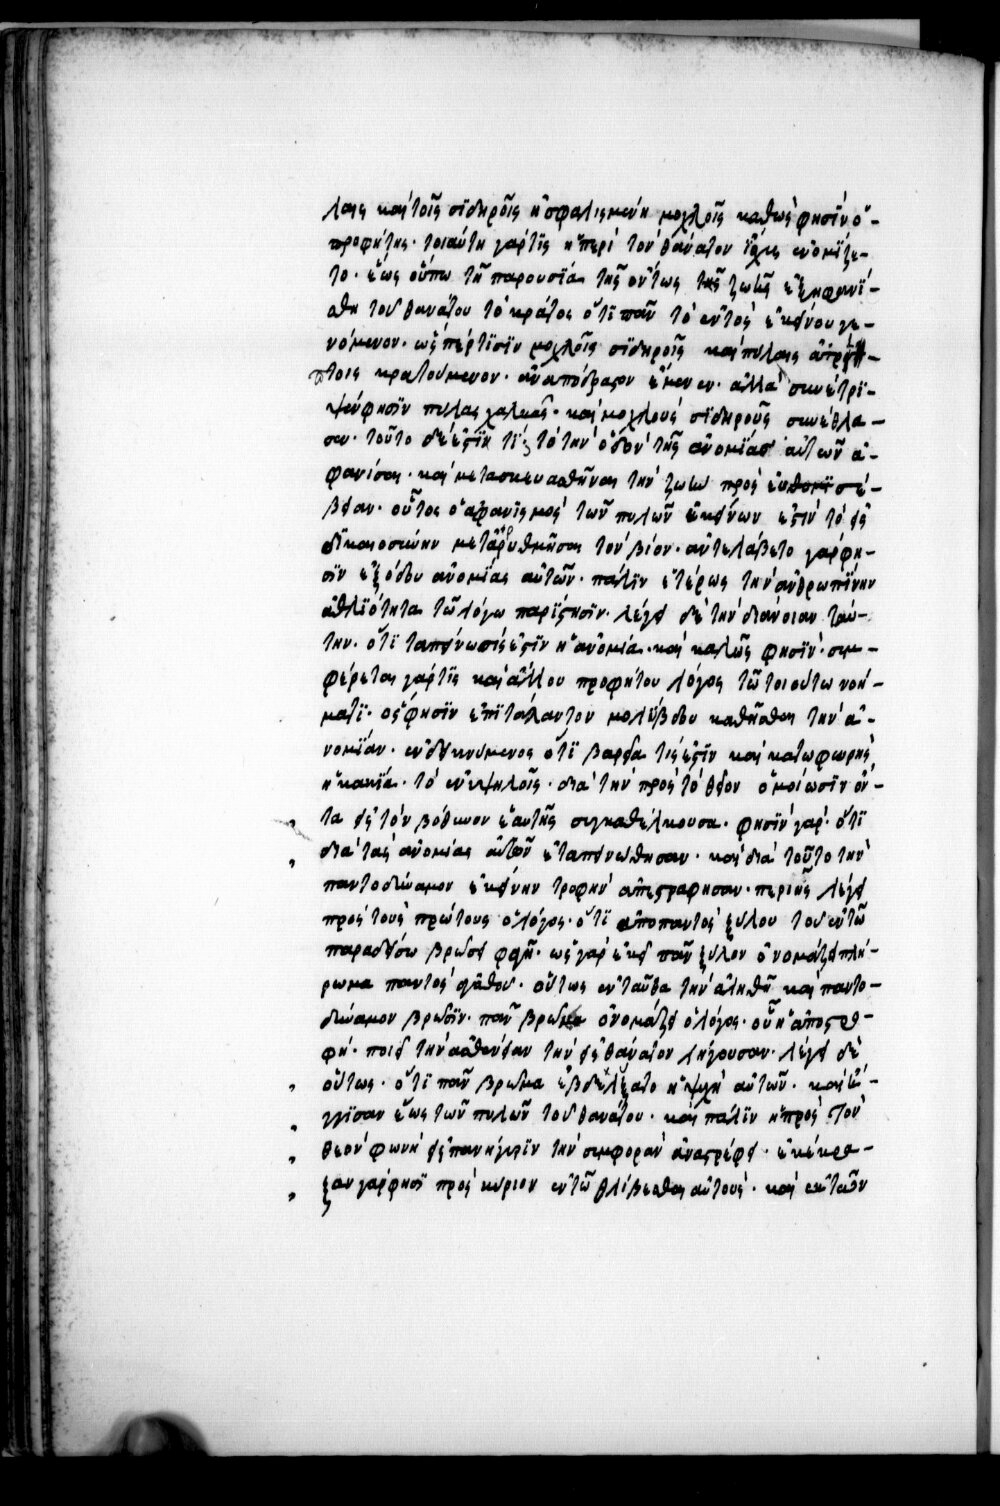 λαις καὶ τοῖς σϊδηροῖς ἠσφαλισμένη μοχλοῖς καθὼς φησὶν ὁ
προφήτης· τοιαύτη γάρ τῒς ἡ περὶ τὸν θάνατον ἰσχὺς ἐνομίζε-
το· ἕως οὔπω τῇ παρουσίᾳ τῆς ὄντως τῆς ζωῆς ἐξηφανί-
σθη τοῦ θανάτου τὸ κράτος ὅτϊ πᾶν τὸ ἐντὸς ἐκείνου γε-
νόμενον· ὡσπέρ τϊσϊν μοχλοῖς σϊδηροῖς καὶ πύλαις ἀτρή-
τοις κρατούμενον· ἀναπόδραστον ἔμενεν· ἀλλὰ συνέτρϊ-
ψέν φησϊν πύλας χαλκᾶς· καὶ μοχλοὺς σϊδηροῦς συνέθλα-
σεν· τοῦτο δέ ἐστϊν τί; τὸ τὴν ὁδὸν τῆς ἀνομίας αὐτῶν ἀ-
φανίσαι· καὶ μετασκευασθῆναι τὴν ζωὴν πρὸς εὐσέ-
βειαν· οὗτος ὁ ἀφανϊσμὸς τῶν πυλῶν ἐκείνων ἐστὶν τὸ εἰς
δϊκαιοσύνην μεταρρυθμῆσαι τὸν βίον· ἀντελάβετο γάρ φη-
σϊν ἐξ ὁδοῦ ἀνομίας αὐτῶν· πάλϊν ἑτέρως τὴν ἀνθρωπίνην
ἀθλϊότητα τῷ λόγω παρίστησϊν· λέγει δὲ τὴν διάνοιαν ταύ-
την· ὅτϊ ταπείνωσίς ἐστϊν ἡ ἀνομία· καὶ καλῶς φησϊν· συμ-
φέρεται γάρ τῒς καὶ ἄλλου προφήτου λόγος τῷ τοιούτω νοή-
ματϊ· ὅς φησϊν ἐπϊ τάλαντον μολΰβδου καθῆσθαι τὴν ἀ-
νομίαν· ἐνδεικνύμενος ὅτϊ βαρεῖα τίς ἐστϊν καὶ κατωφερὴς
ἡ κακία· τὸ ἐνυψηλοῖς· διὰ τὴν πρὸς τὸ θεῖον ὁμοίωσϊν ὄν-
τα εἰς τὸν βόθυνον ἑαυτῆς συγκαθέλκουσα· φησϊν γάρ· ὅτϊ
διὰ τὰς ἀνομίας αὐτῶν ἐταπεινώθησαν· καὶ διὰ τοῦτο τὴν
παντοδύναμον ἐκείνην τροφὴν ἀπεστράφησαν· περὶ ἧς λέγει
πρὸς τοὺς πρώτους ὁ λόγος· ὅτϊ ἀπὸ παντὸς ξύλου τοῦ ἐν τῷ
παραδείσω βρώσει φαγῇ· ὡς γὰρ ἐκεῖ πᾶν ξύλον ὀνομάζει πλή-
ρωμα παντὸς ἀγαθοῦ· οὕτως ἐνταῦθα τὴν ἀληθῆ καὶ παντο-
δύναμον βρῶσϊν· πᾶν βρῶμα ὀνομάζει ὁ λόγος· οὗ ἡ ἀποστρο-
φὴ· ποιεῖ τὴν ἀσθένειαν τὴν εἰς θάνατον λήγουσαν· λέγει δὲ
οὕτως· ὅτϊ πᾶν βρῶμα ἐβδελύξατο ἡ ψυχὴ αὐτῶν· καὶ ἤ-
γγϊσαν ἕως τῶν πυλῶν τοῦ θανάτου· καὶ πάλϊν ἡ πρὸς τὸν
θεὸν φωνὴ εἰς πανήγυρϊν τὴν συμφορὰν ἀναστρέφει· ἐκέκρα-
ξαν γάρ φησϊ πρὸς κύριον ἐν τῷ θλίβεσθαι αὐτούς· καὶ ἐκ τῶν